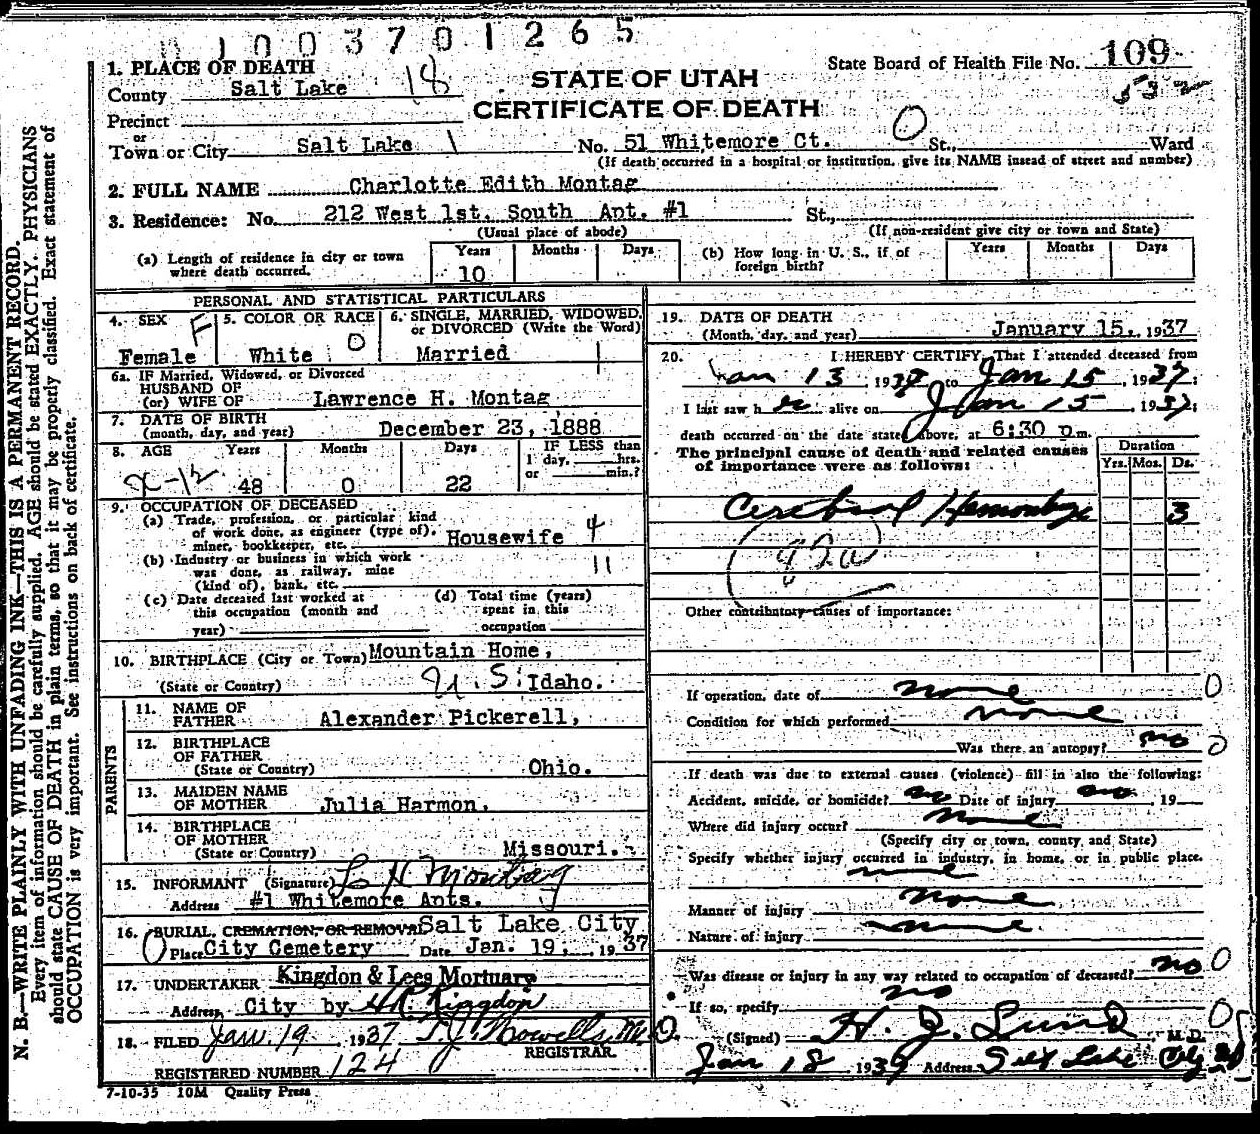 1003701265
1. PLACE OF DEATH
County Salt Lake 18
STATE OF UTAH
CERTIFICATE OF DEATH
State Board of Health File No. 109
532
Precinct
or
Town or City Salt Lake 1 No. 51 Whitemore Ct. O St., Ward
(If death occurred in a hospital or institution, give its NAME instead of street and number)
2. FULL NAME Charlotte Edith Montag
3. Residence: No. 212 West 1st. South Apt. #1 St.,
(Usual place of abode) (If non-resident give city or town and State)
(a) Length of residence in city or town where death occurred. Years 10 Months Days
(b) How long in U. S., if of foreign birth? Years Months Days
PERSONAL AND STATISTICAL PARTICULARS
4. SEX F Female
5. COLOR OR RACE White 0
6. SINGLE, MARRIED, WIDOWED, or DIVORCED (Write the Word) Married 1
6a. IF Married, Widowed, or Divorced
HUSBAND OF
(or) WIFE OF Lawrence H. Montag
7. DATE OF BIRTH
(month, day, and year) December 23, 1888
8. AGE Years Months Days IF LESS than
1 day, hrs.
or min.?
48 0 22
9. OCCUPATION OF DECEASED
(a) Trade, profession, or particular kind
of work done, as engineer (type of),
miner, bookkeeper, etc. Housewife 4
(b) Industry or business in which work
was done, as railway, mine
(kind of), bank, etc. 11
(c) Date deceased last worked at
this occupation (month and
year)
(d) Total time (years)
spent in this
occupation
10. BIRTHPLACE (City or Town) Mountain Home,
(State or Country) U. S. Idaho.
PARENTS
11. NAME OF
FATHER Alexander Pickerell,
12. BIRTHPLACE
OF FATHER
(State or Country) Ohio.
13. MAIDEN NAME
OF MOTHER Julia Harmon.
14. BIRTHPLACE
OF MOTHER
(State or Country) Missouri.
15. INFORMANT (Signature) L H Montag
Address #1 Whitemore Apts.
16. BURIAL, CREMATION, OR REMOVAL Salt Lake City
Place City Cemetery Date Jan. 19, 1937
17. UNDERTAKER Kingdon & Lees Mortuary
Address City by
18. FILED Jan. 19 1937 T. J. Howells, M.D.
REGISTRAR.
REGISTERED NUMBER 124
7-10-35 10M Quality Press
19. DATE OF DEATH
(Month, day, and year) January 15, 1937
20. I HEREBY CERTIFY, That I attended deceased from
Jan 13 1937 to Jan 15, 1937;
I last saw her alive on Jan 15, 1937;
death occurred on the date stated above, at 6:30 p.m.
The principal cause of death and related causes
of importance were as follows:
Duration
Yrs. Mos. Ds.
Cerebral Hemorrhage 3
82a
Other contributory causes of importance:
If operation, date of none 0
Condition for which performed none
Was there an autopsy? no 0
If death was due to external causes (violence) fill in also the following:
Accident, suicide, or homicide? no Date of injury no, 19
Where did injury occur? none
(Specify city or town, county, and State)
Specify whether injury occurred in industry, in home, or in public place.
none
Manner of injury none
Nature of injury none
Was disease or injury in any way related to occupation of deceased? no 0
If so, specify no
(Signed) H. J. Lund, M. D.
Jan 18 1937 Address Salt Lake City
N. B.—WRITE PLAINLY WITH UNFADING INK—THIS IS A PERMANENT RECORD.
Every item of information should be carefully supplied. AGE should be stated EXACTLY. PHYSICIANS
should state CAUSE OF DEATH in plain terms, so that it may be properly classified. Exact statement of
OCCUPATION is very important. See instructions on back of certificate.